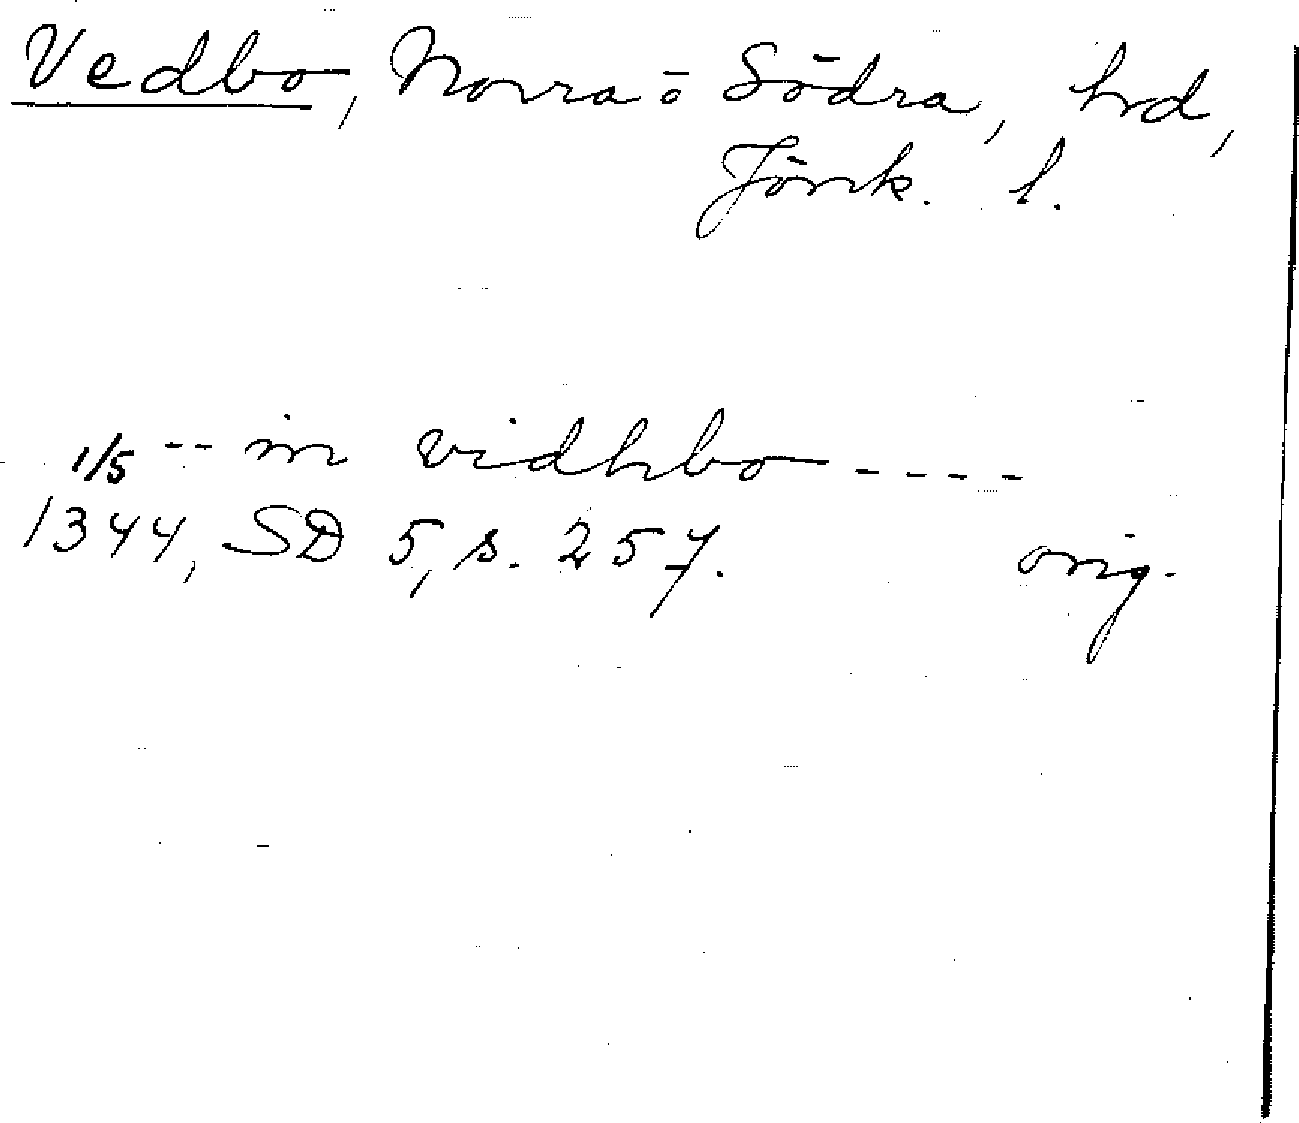 Vedbo, Norra ö Södra, hrd,
Jönk. l.
1/5 -- in vidhbo ----
1344, SD 5, s. 257. orig.